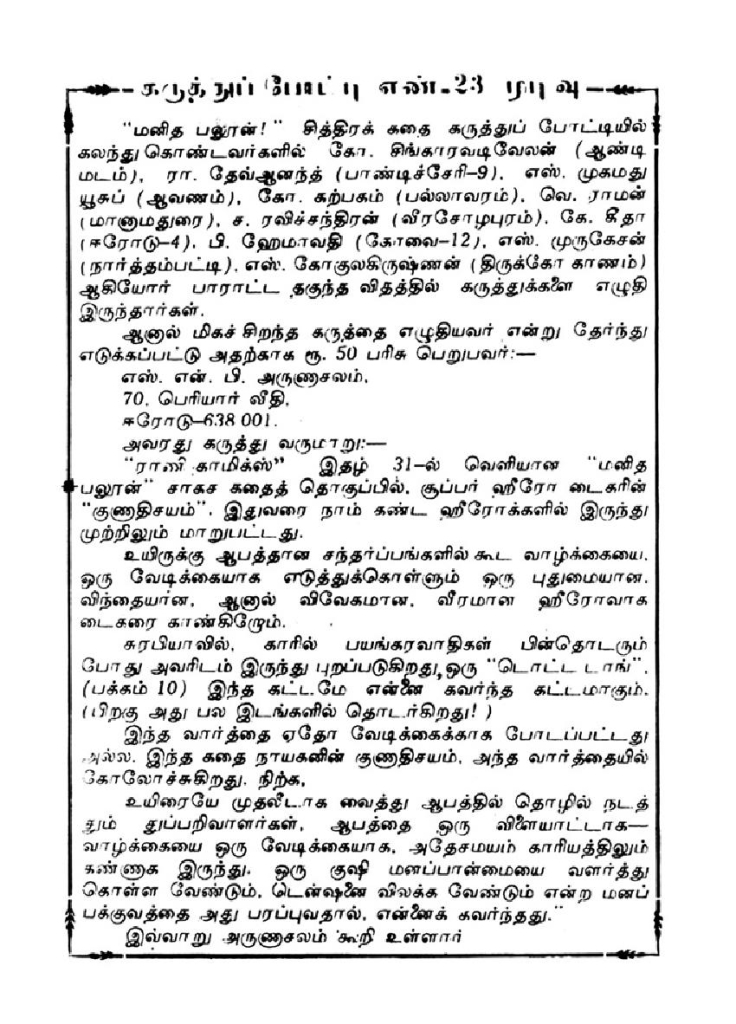 கருத்துப் போட்டி எண்-23 முடிவு
"மனித பலூன்!" சித்திரக் கதை கருத்துப் போட்டியில்
கலந்து கொண்டவர்களில் கோ. சிங்காரவடிவேலன் (ஆண்டி
மடம்), ரா. தேவ்ஆனந்த் (பாண்டிச்சேரி-9), எஸ். முகமது
யூசுப் (ஆவணம்), கோ. கற்பகம் (பல்லாவரம்), வெ. ராமன்
(மானாமதுரை), ச. ரவிச்சந்திரன் (வீரசோழபுரம்). கே. கீதா
(ஈரோடு-4), பி. ஹேமாவதி (கோவை-12), எஸ். முருகேசன்
(நார்த்தம்பட்டி), எஸ். கோகுலகிருஷ்ணன் (திருக்கோ காணம்)
ஆகியோர் பாராட்ட தகுந்த விதத்தில் கருத்துக்களை எழுதி
இருந்தார்கள்.
ஆனால் மிகச் சிறந்த கருத்தை எழுதியவர் என்று தேர்ந்து
எடுக்கப்பட்டு அதற்காக ரூ. 50 பரிசு பெறுபவர்:—
எஸ். என். பி. அருணாசலம்,
70, பெரியார் வீதி,
ஈரோடு-638 001.
அவரது கருத்து வருமாறு:—
"ராணி காமிக்ஸ்" இதழ் 31-ல் வெளியான "மனித
பலூன்" சாகச கதைத் தொகுப்பில், சூப்பர் ஹீரோ டைகரின்
"குணாதிசயம்", இதுவரை நாம் கண்ட ஹீரோக்களில் இருந்து
முற்றிலும் மாறுபட்டது.
உயிருக்கு ஆபத்தான சந்தர்ப்பங்களில் கூட வாழ்க்கையை,
ஒரு வேடிக்கையாக எடுத்துக்கொள்ளும் ஒரு புதுமையான,
விந்தையான, ஆனால் விவேகமான, வீரமான ஹீரோவாக
டைகரை காண்கிறோம்.
சுரபியாவில், காரில் பயங்கரவாதிகள் பின்தொடரும்
போது அவரிடம் இருந்து புறப்படுகிறது, ஒரு "டொட்ட டாங்",
(பக்கம் 10) இந்த கட்டமே என்னை கவர்ந்த கட்டமாகும்.
(பிறகு அது பல இடங்களில் தொடர்கிறது!)
இந்த வார்த்தை ஏதோ வேடிக்கைக்காக போடப்பட்டது
அல்ல. இந்த கதை நாயகனின் குணாதிசயம், அந்த வார்த்தையில்
கோலோச்சுகிறது. நிற்க,
உயிரையே முதலீடாக வைத்து ஆபத்தில் தொழில் நடத்
தும் துப்பறிவாளர்கள், ஆபத்தை ஒரு விளையாட்டாக—
வாழ்க்கையை ஒரு வேடிக்கையாக, அதேசமயம் காரியத்திலும்
கண்ணாக இருந்து, ஒரு குஷி மனப்பான்மையை வளர்த்து
கொள்ள வேண்டும், டென்ஷனை விலக்க வேண்டும் என்ற மனப்
பக்குவத்தை அது பரப்புவதால், என்னைக் கவர்ந்தது."
இவ்வாறு அருணாசலம் கூறி உள்ளார்